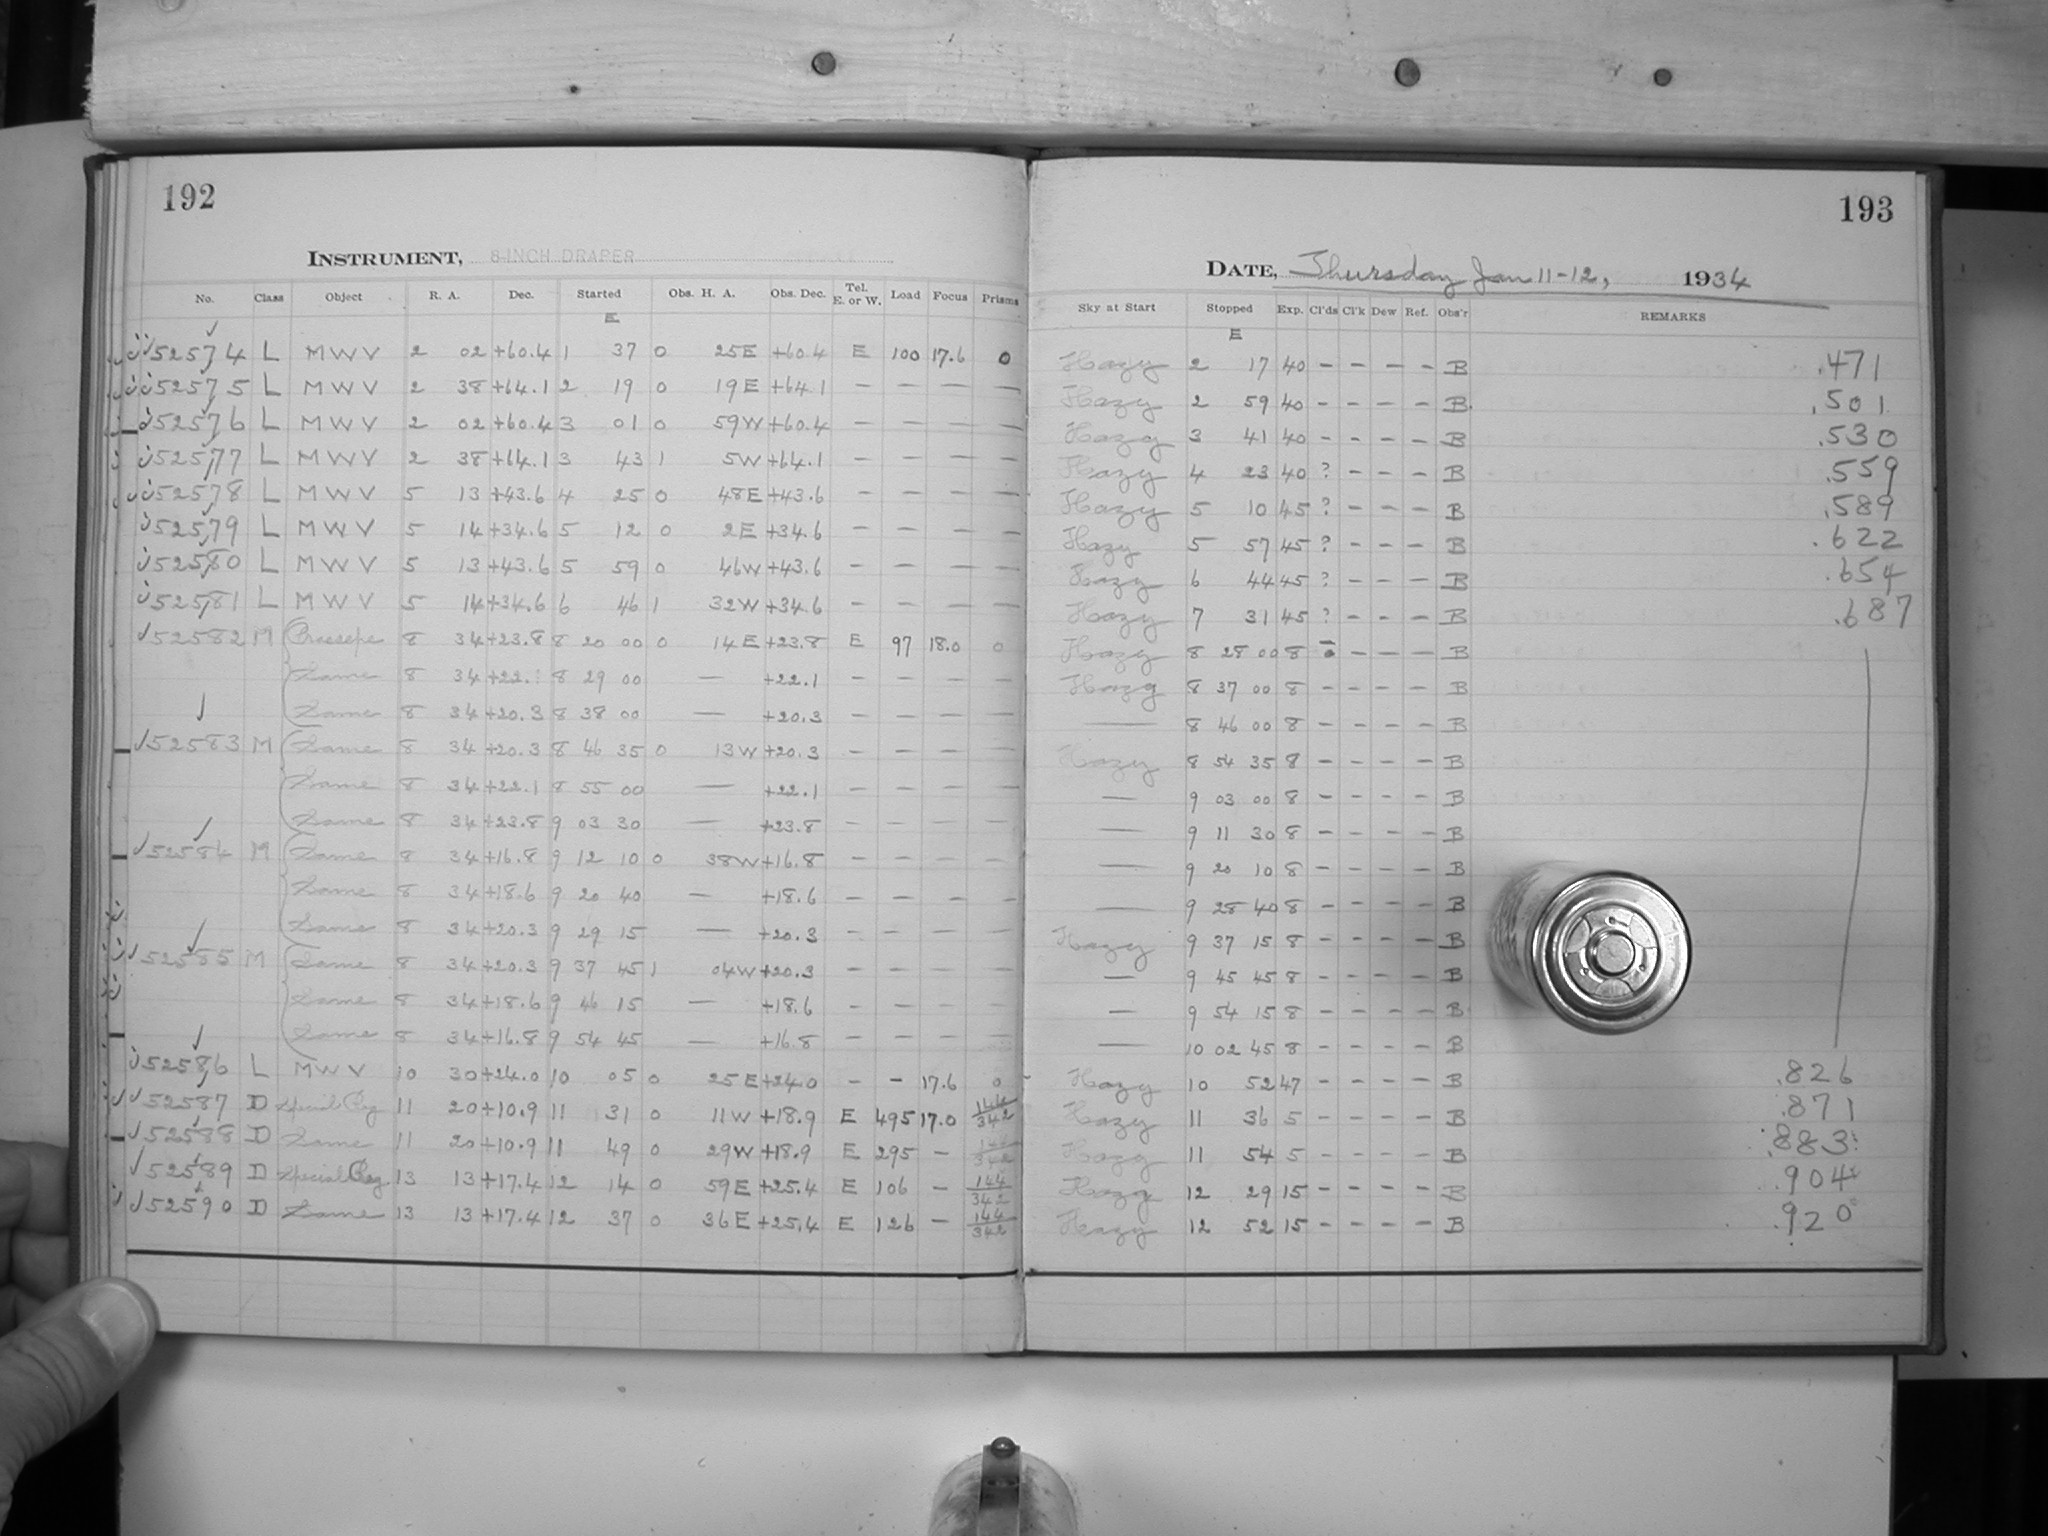 192
INSTRUMENT, 8-INCH DRAPER
No. Class Object R. A. Dec. Started Obs. H. A. Obs. Dec. Tel. E. or W. Load Focus Prisms
E
52574 L M W V 2 02 +60.4 1 37 0 25E +60.4 E 100 17.6 0
52575 L M W V 2 38 +64.1 2 19 0 19E +64.1 — — — —
52576 L M W V 2 02 +60.4 3 01 0 59W +60.4 — — — —
52577 L M W V 2 38 +64.1 3 43 1 5W +64.1 — — — —
52578 L M W V 5 13 +43.6 4 25 0 48E +43.6 — — — —
52579 L M W V 5 14 +34.6 5 12 0 2E +34.6 — — — —
52580 L M W V 5 13 +43.6 5 59 0 46W +43.6 — — — —
52581 L M W V 5 14 +34.6 6 46 1 32W +34.6 — — — —
52582 M Praesepe 8 34 +23.8 8 20 00 0 14E +23.8 E 97 18.0 0
Same 8 34 +22.1 8 29 00 — +22.1 — — — —
Same 8 34 +20.3 8 38 00 — +20.3 — — — —
52583 M Same 8 34 +20.3 8 46 35 0 13W +20.3 — — — —
Same 8 34 +22.1 8 55 00 — +22.1 — — — —
Same 8 34 +23.8 9 03 30 — +23.8 — — — —
52584 M Same 8 34 +16.8 9 12 10 0 38W +16.8 — — — —
Same 8 34 +18.6 9 20 40 — +18.6 — — — —
Same 8 34 +20.3 9 29 15 — +20.3 — — — —
52585 M Same 8 34 +20.3 9 37 45 1 04W +20.3 — — — —
Same 8 34 +18.6 9 46 15 — +18.6 — — — —
Same 8 34 +16.8 9 54 45 — +16.8 — — — —
52586 L M W V 10 30 +24.0 10 05 0 25E +24.0 — — 17.6 0
52587 D Special Reg 11 20 +10.9 11 31 0 11W +18.9 E 495 17.0 144/342
52588 D Same 11 20 +10.9 11 49 0 29W +18.9 E 295 — 144/342
52589 D Special Reg 13 13 +17.4 12 14 0 59E +25.4 E 106 — 144/342
52590 D Same 13 13 +17.4 12 37 0 36E +25.4 E 126 — 144/342
193
DATE, Thursday Jan 11-12, 1934
Sky at Start Stopped Exp. Cl'ds Cl'k Dew Ref. Obs'r REMARKS
E
Hazy 2 17 40 – – – – B .471
Hazy 2 59 40 – – – – B .501
Hazy 3 41 40 – – – – B .530
Hazy 4 23 40 ? – – – B .559
Hazy 5 10 45 ? – – – B .589
Hazy 5 57 45 ? – – – B .622
Hazy 6 44 45 ? – – – B .654
Hazy 7 31 45 ? – – – B .687
Hazy 8 28 00 8 – – – B
Hazy 8 37 00 8 – – – – B
— 8 46 00 8 – – – – B
Hazy 8 54 35 8 – – – – B
— 9 03 00 8 – – – – B
— 9 11 30 8 – – – – B
— 9 20 10 8 – – – – B
— 9 28 40 8 – – – – B
Hazy 9 37 15 8 – – – – B
— 9 45 45 8 – – – – B
— 9 54 15 8 – – – – B
— 10 02 45 8 – – – – B
Hazy 10 52 47 – – – – B .826
Hazy 11 36 5 – – – – B .871
Hazy 11 54 5 – – – – B .883
Hazy 12 29 15 – – – – B .904
Hazy 12 52 15 – – – – B .920